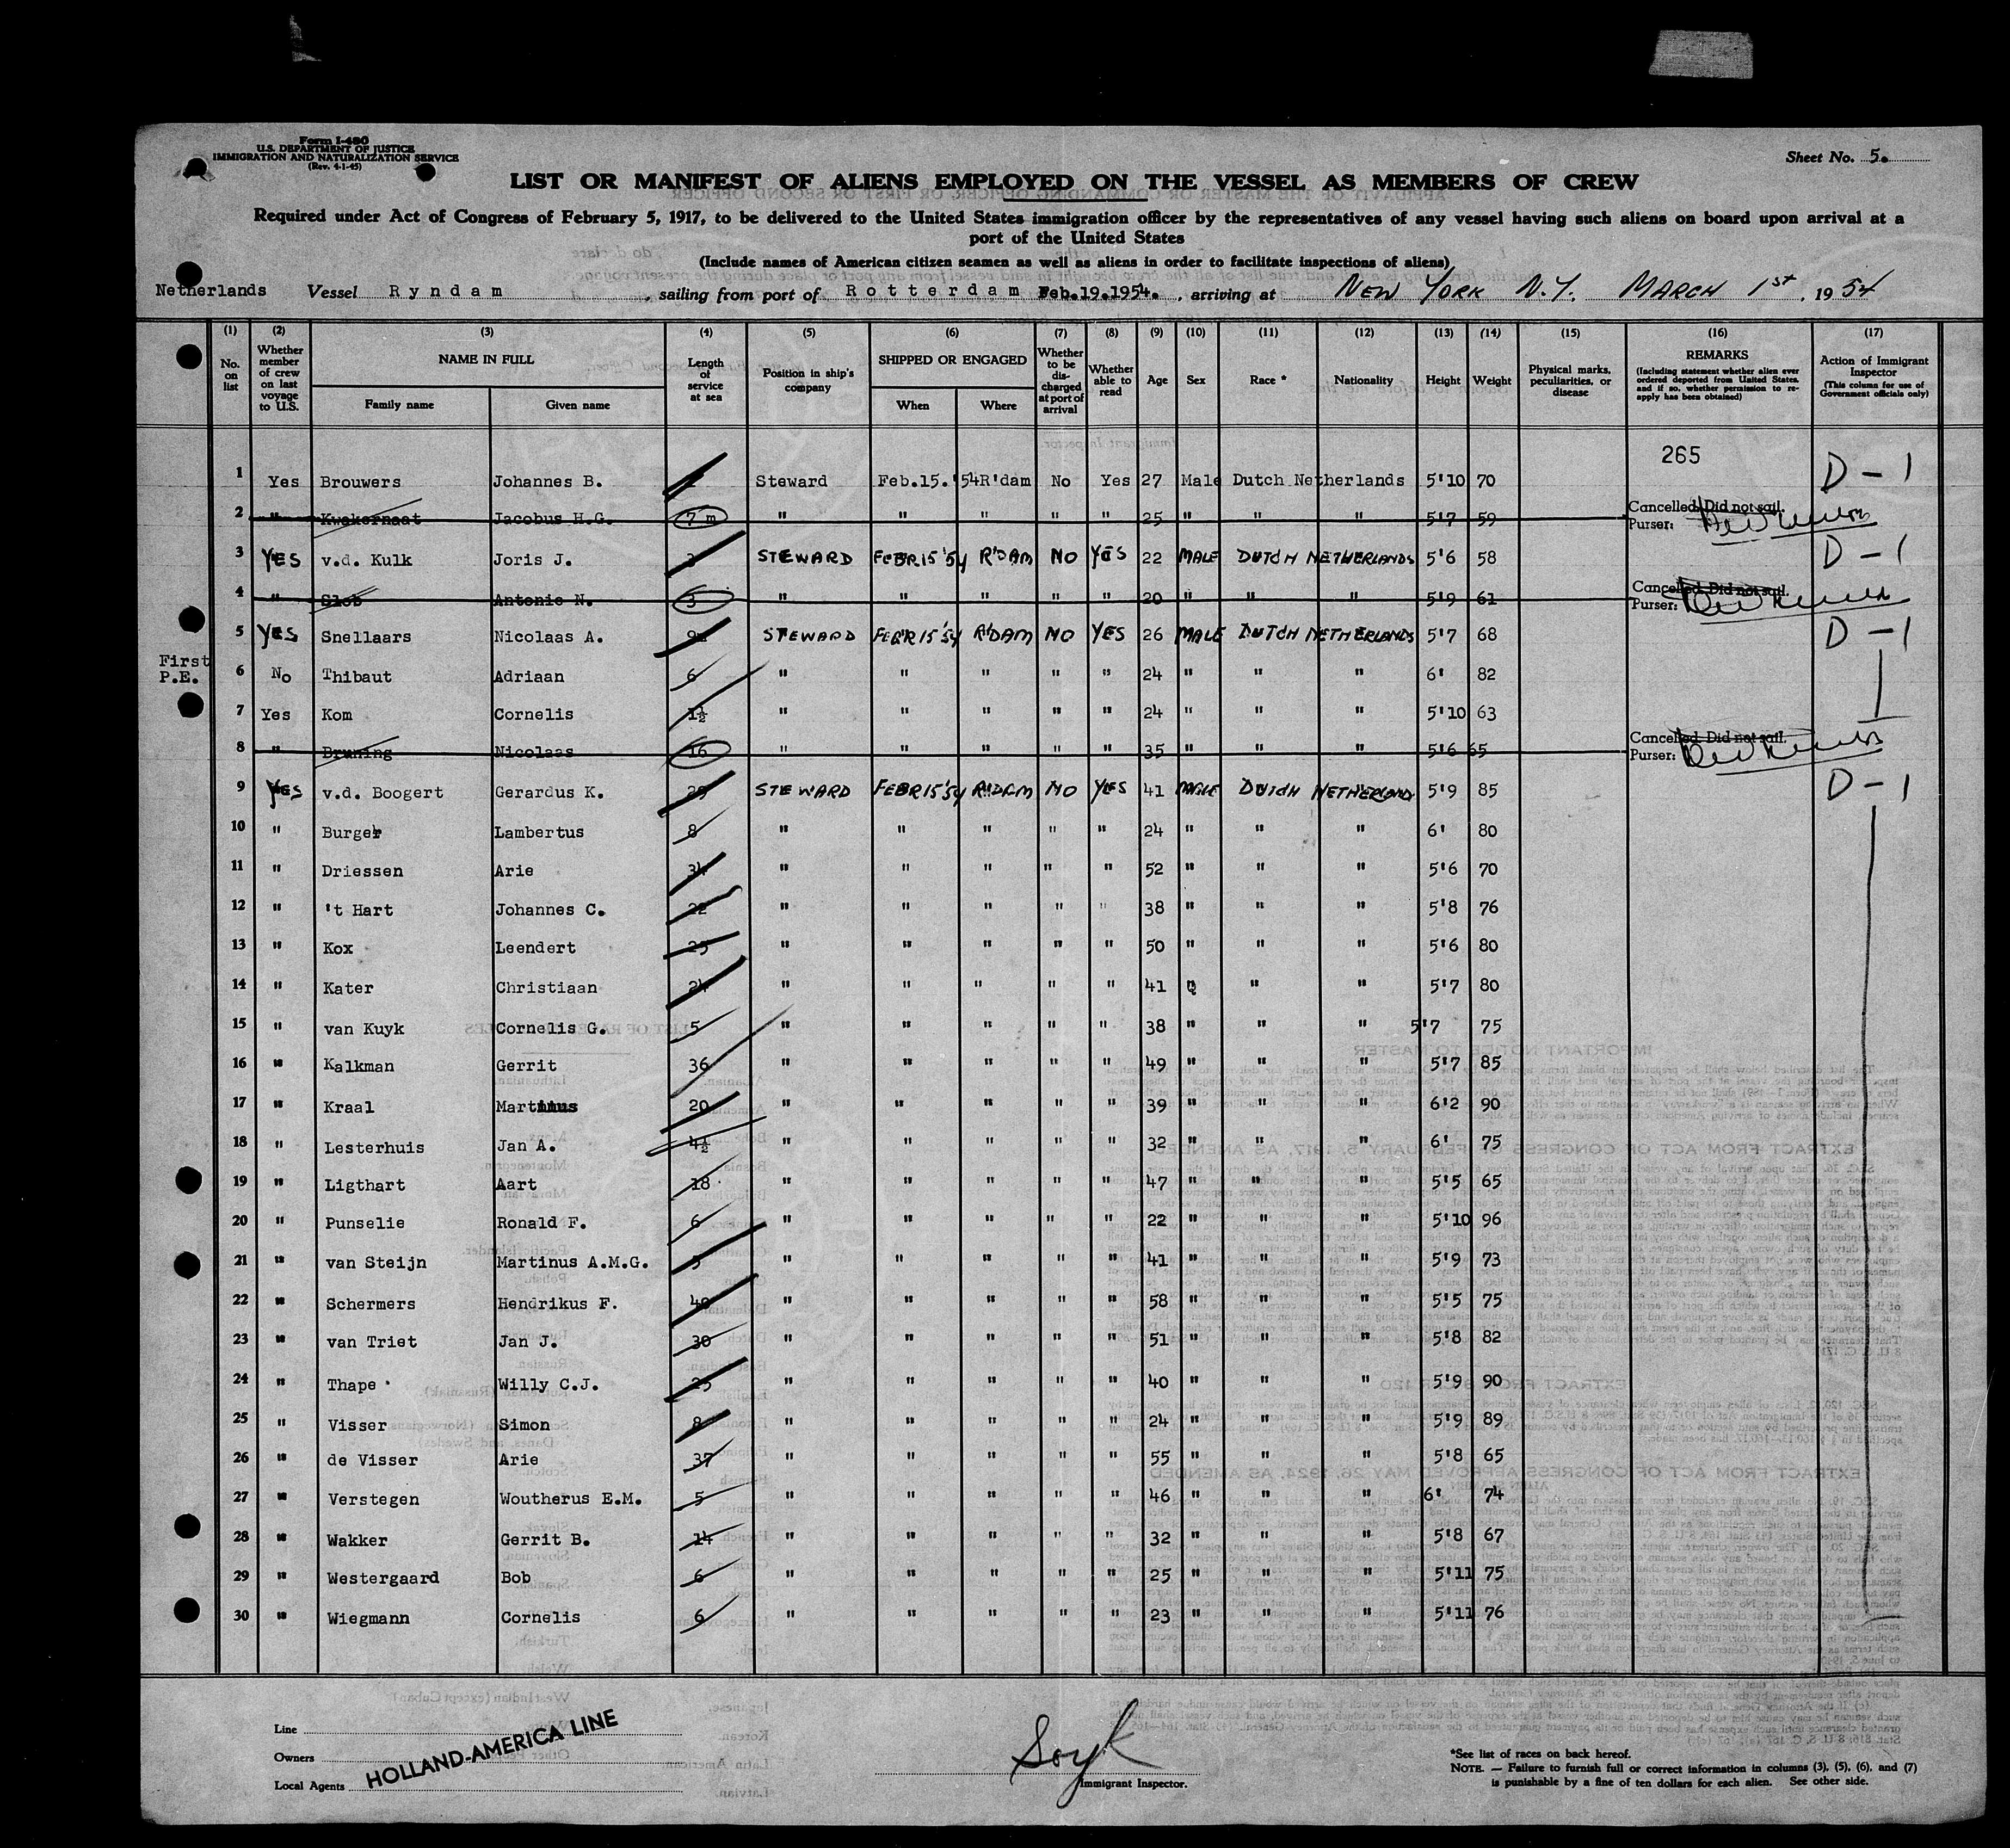 Form I-480
U.S. DEPARTMENT OF JUSTICE
IMMIGRATION AND NATURALIZATION SERVICE
(Rev. 4-1-45)
Sheet No. 5.
LIST OR MANIFEST OF ALIENS EMPLOYED ON THE VESSEL AS MEMBERS OF CREW
Required under Act of Congress of February 5, 1917, to be delivered to the United States immigration officer by the representatives of any vessel having such aliens on board upon arrival at a
port of the United States
(Include names of American citizen seamen as well as aliens in order to facilitate inspections of aliens)
Netherlands Vessel Ryndam, sailing from port of Rotterdam Feb.19.1954., arriving at NEW YORK N.Y. MARCH 1st, 1954
(1) No. on list (2) Whether member of crew on last voyage to U.S. (3) NAME IN FULL Family name Given name (4) Length of service at sea (5) Position in ship's company (6) SHIPPED OR ENGAGED When Where (7) Whether to be discharged at port of arrival (8) Whether able to read (9) Age (10) Sex (11) Race * (12) Nationality (13) Height (14) Weight (15) Physical marks, peculiarities, or disease (16) REMARKS (Including statement whether alien ever ordered deported from United States, and if so, whether permission to re-apply has been obtained) (17) Action of Immigrant Inspector (This column for use of Government officials only)
265
1 Yes Brouwers Johannes B. Steward Feb.15.'54 R'dam No Yes 27 Male Dutch Netherlands 5'10 70 D-1
2 " Kwakernaat Jacobus H.G. 7 m " " " " " 25 " " " 5'7 59 Cancelled. Did not sail. Purser:
3 YES v.d. Kulk Joris J. 3 STEWARD FEBR 15 '54 R'DAM NO YES 22 MALE DUTCH NETHERLANDS 5'6 58 D-1
4 " Slob Antonie N. 3 " " " " " 20 " " " 5'9 61 Cancelled. Did not sail. Purser:
5 YES Snellaars Nicolaas A. STEWARD FEBR 15 '54 R'DAM NO YES 26 MALE DUTCH NETHERLANDS 5'7 68 D-1
First P.E. 6 No Thibaut Adriaan 6 " " " " " 24 " " " 6' 82
7 Yes Kom Cornelis 1½ " " " " " 24 " " " 5'10 63
8 " Bruning Nicolaas 16 " " " " " 35 " " " 5'6 65 Cancelled. Did not sail. Purser:
9 YES v.d. Boogert Gerardus K. STEWARD FEBR 15 '54 R'DAM NO YES 41 MALE DUTCH NETHERLAND 5'9 85 D-1
10 " Burger Lambertus 8 " " " " " 24 " " " 6' 80
11 " Driessen Arie 34 " " " " " 52 " " " 5'6 70
12 " 't Hart Johannes C. 22 " " " " " 38 " " " 5'8 76
13 " Kox Leendert 25 " " " " " 50 " " " 5'6 80
14 " Kater Christiaan 24 " " " " " 41 " " " 5'7 80
15 " van Kuyk Cornelis G. 5 " " " " " 38 " " " 5'7 75
16 " Kalkman Gerrit 36 " " " " " 49 " " " 5'7 85
17 " Kraal Martinus 20 " " " " " 39 " " " 6'2 90
18 " Lesterhuis Jan A. 4½ " " " " " 32 " " " 6' 75
19 " Ligthart Aart 18 " " " " " 47 " " " 5'5 65
20 " Punselie Ronald F. 6 " " " " " 22 " " " 5'10 96
21 " van Steijn Martinus A.M.G. 5 " " " " " 41 " " " 5'9 73
22 " Schermers Hendrikus F. 40 " " " " " 58 " " " 5'5 75
23 " van Triet Jan J. 30 " " " " " 51 " " " 5'8 82
24 " Thape Willy C.J. 25 " " " " " 40 " " " 5'9 90
25 " Visser Simon 8 " " " " " 24 " " " 5'9 89
26 " de Visser Arie 37 " " " " " 55 " " " 5'8 65
27 " Verstegen Woutherus E.M. 5 " " " " " 46 " " " 6' 74
28 " Wakker Gerrit B. 14 " " " " " 32 " " " 5'8 67
29 " Westergaard Bob 6 " " " " " 25 " " " 5'11 75
30 " Wiegmann Cornelis 6 " " " " " 23 " " " 5'11 76
Line
Owners
Local Agents
HOLLAND-AMERICA LINE
Immigrant Inspector.
*See list of races on back hereof.
NOTE. — Failure to furnish full or correct information in columns (3), (5), (6), and (7)
is punishable by a fine of ten dollars for each alien. See other side.